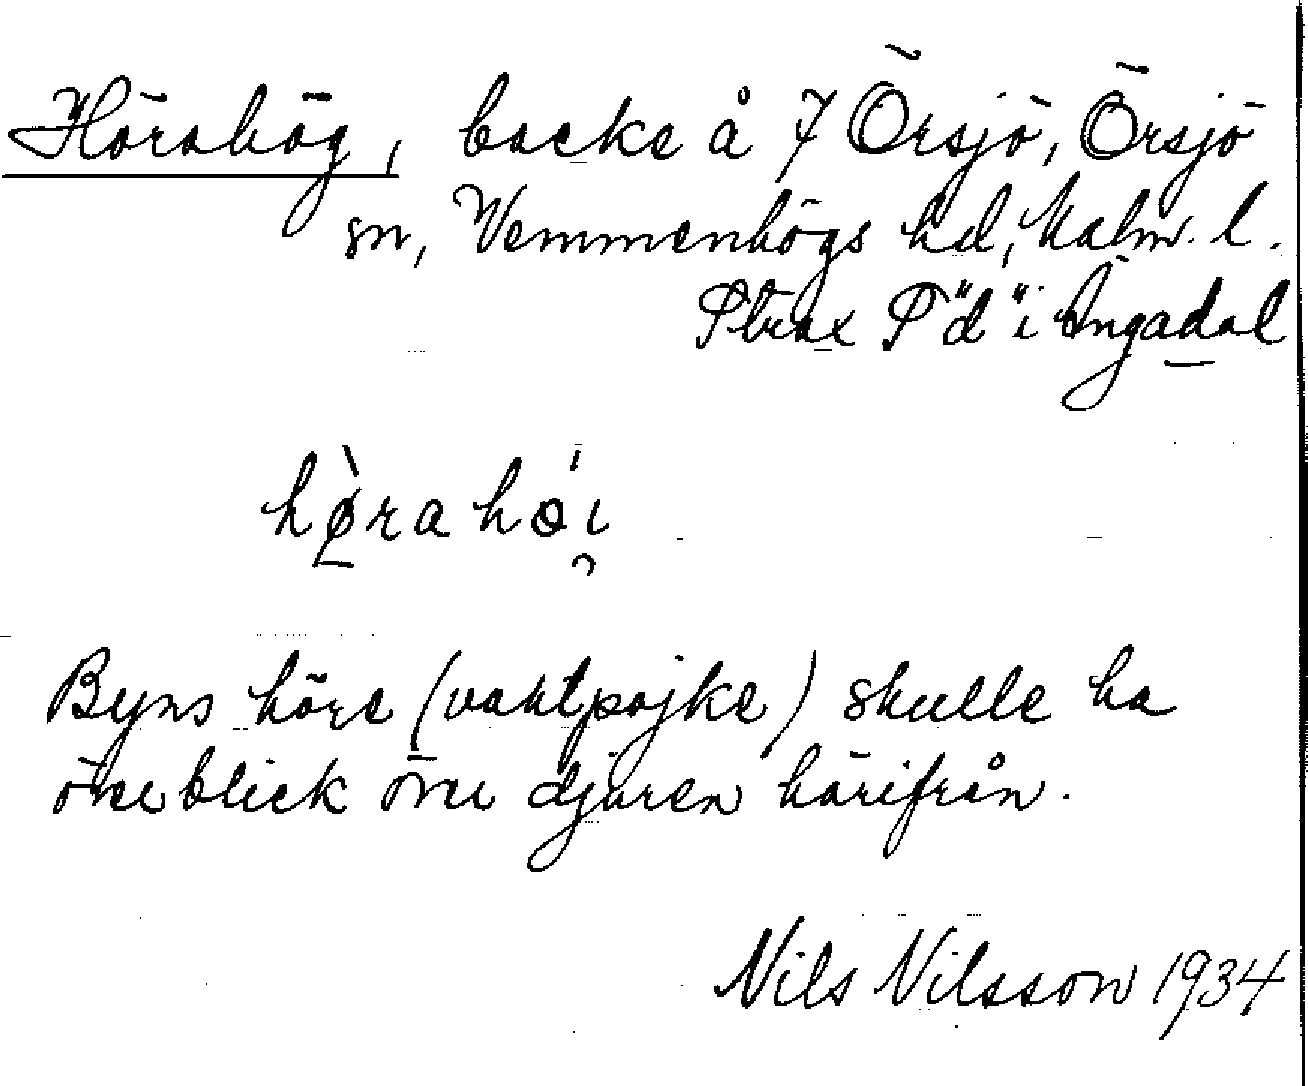 Hörahög, backe å 7 Örsjö, Örsjö
sn, Vemmenhögs hd, Malm. l.
Strax S "d" i Ängadal
hø̀rahói
Byns höre (vaktpojke) skulle ha
överblick över djuren härifrån.
Nils Nilsson 1934